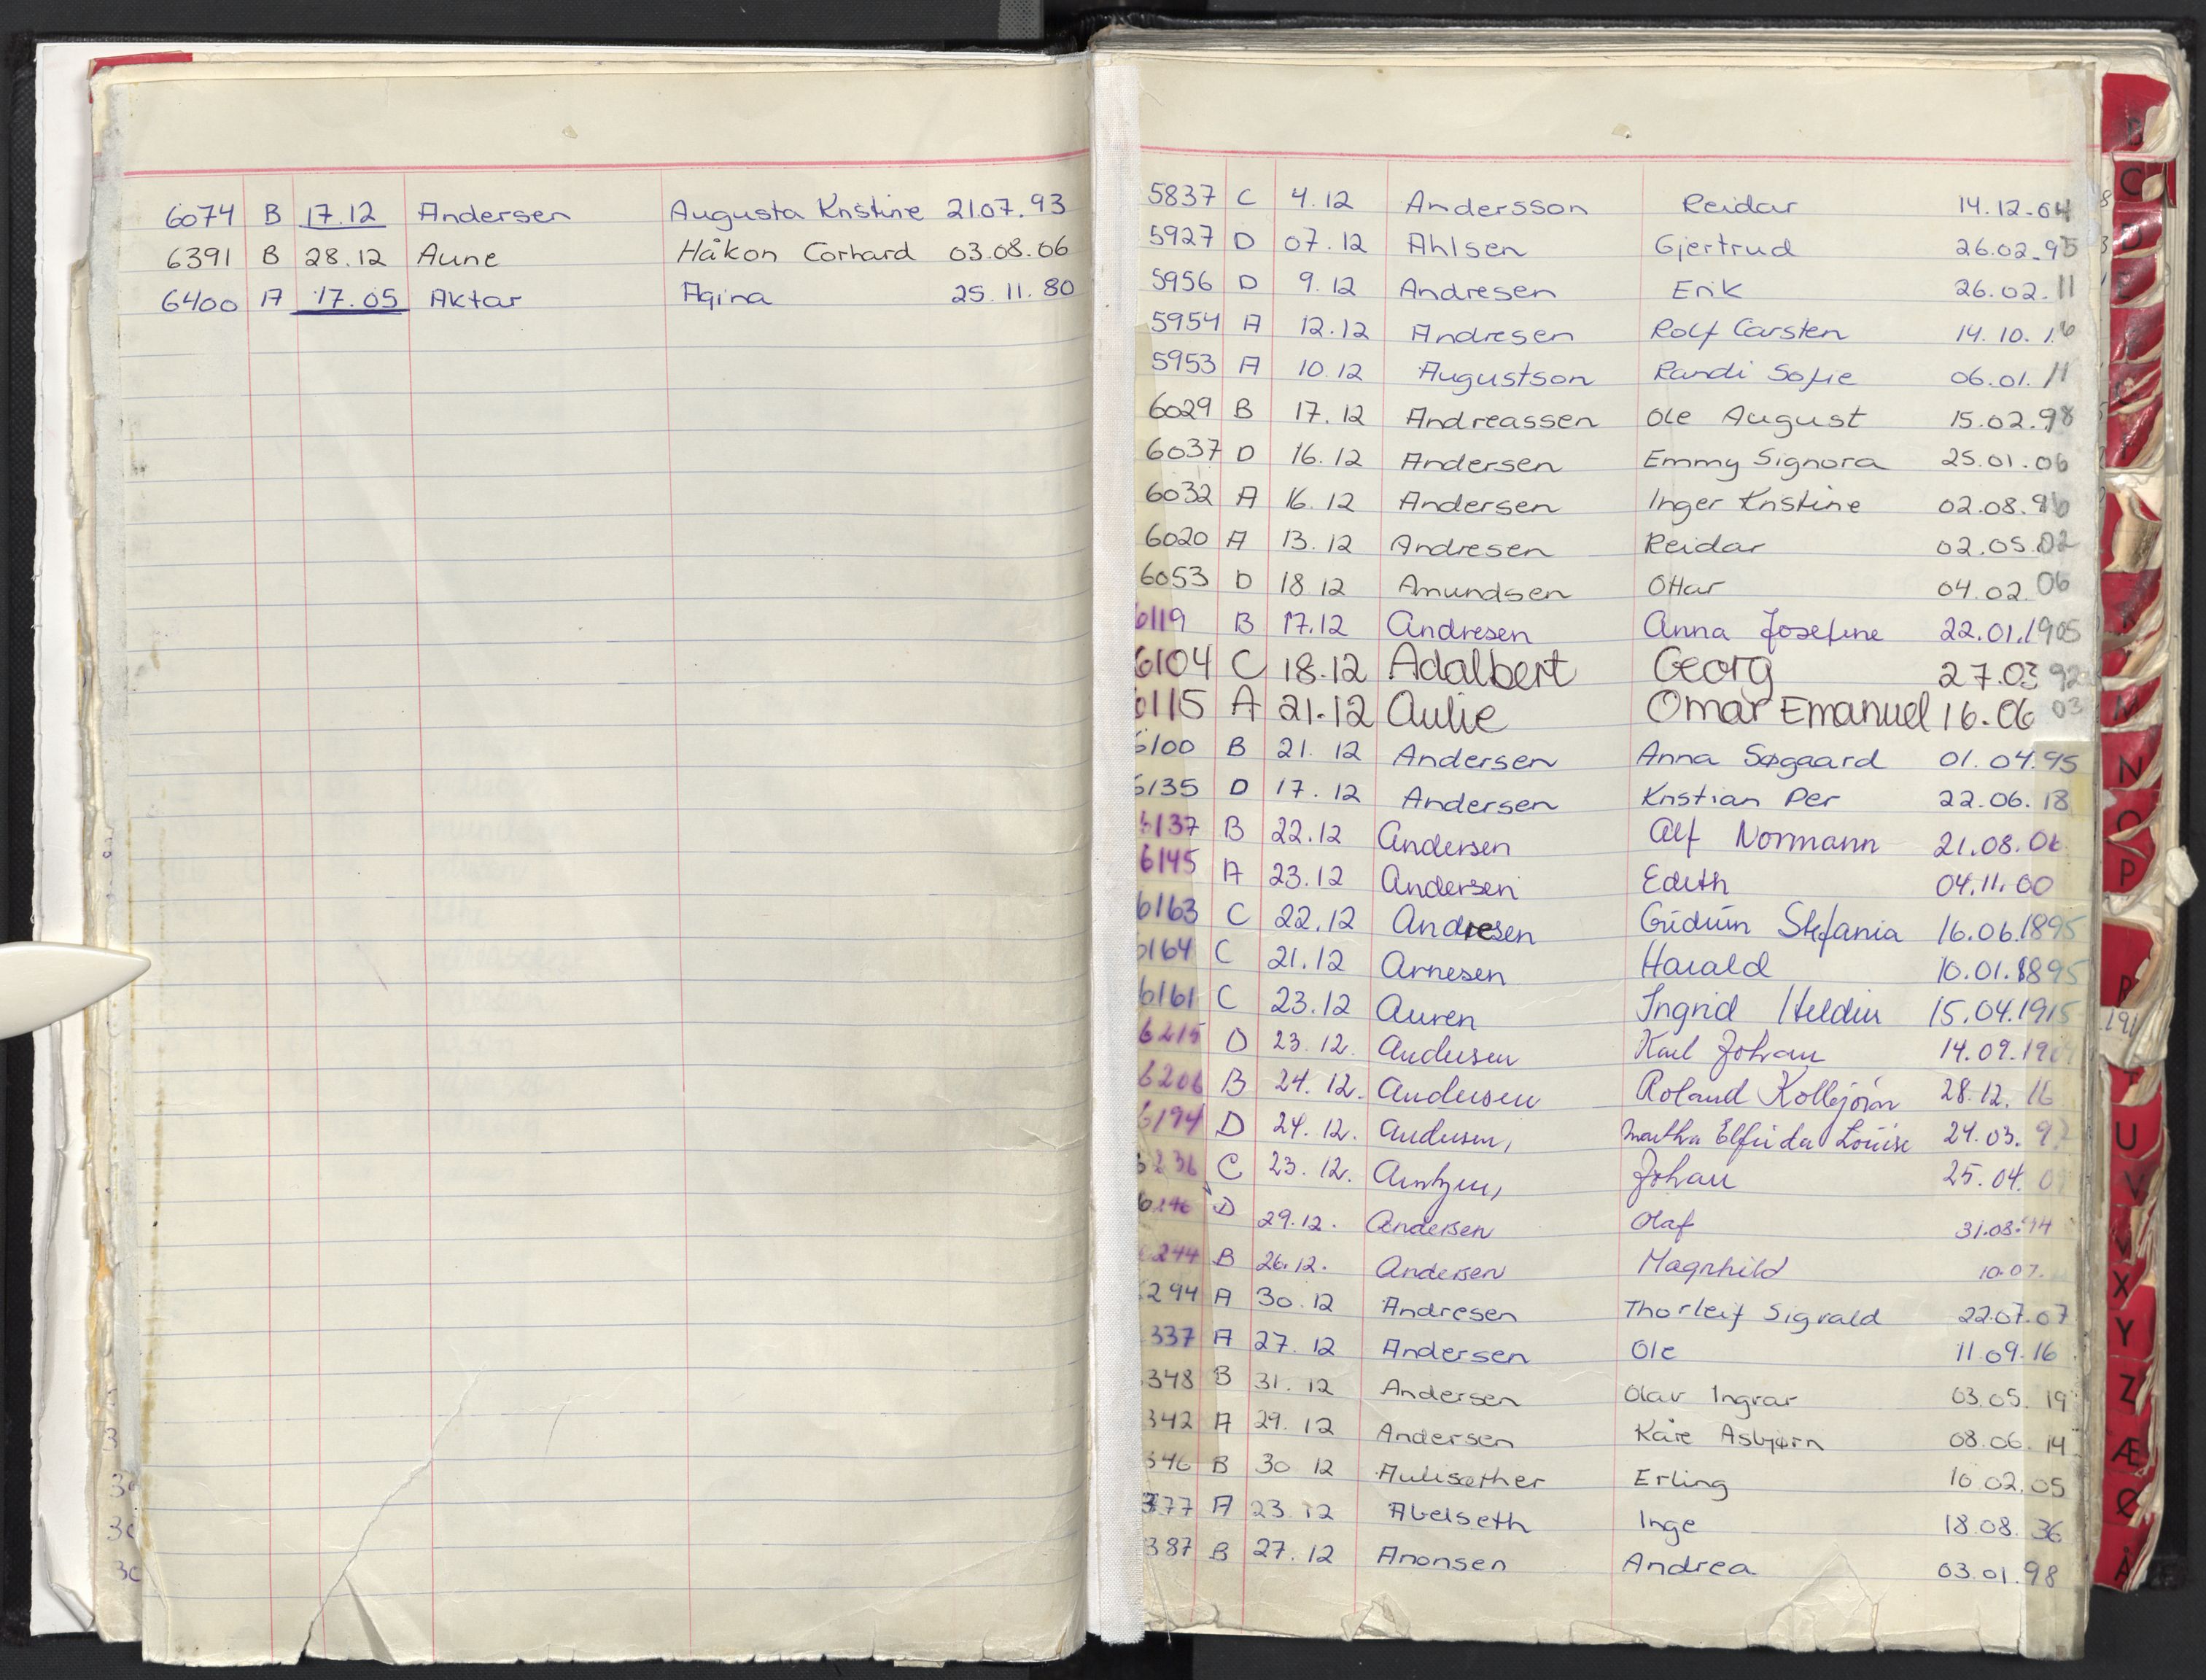 6074 B 17.12 Andersen Augusta Kristine 21.07.93
6391 B 28.12 Aune Håkon Corhard 03.08.06
6400 A 17.05 Aktar Aqina 25.11.80
5837 C 4.12 Andersson Reidar 14.12.04
5927 D 07.12 Ahlsen Gjertrud 26.02.95
5956 D 9.12 Andresen Erik 26.02.11
5954 A 12.12 Andresen Rolf Carsten 14.10.16
5953 A 10.12 Augustson Randi Sofie 06.01.11
6029 B 17.12 Andreassen Ole August 15.02.98
6037 D 16.12 Andersen Emmy Signora 25.01.06
6032 A 16.12 Andersen Inger Kristine 02.08.96
6020 A 13.12 Andresen Reidar 02.05.02
6053 D 18.12 Amundsen Ottar 04.02.06
6119 B 17.12 Andresen Anna Josefine 22.01.1905
6104 C 18.12 Adalbert Georg 27.03 92
6115 A 21.12 Aulie Omar Emanuel 16.06 03
6100 B 21.12 Andersen Anna Søgaard 01.04.95
6135 D 17.12 Andersen Kristian Per 22.06.18
6137 B 22.12 Andersen Alf Normann 21.08.06
6145 A 23.12 Andersen Edith 04.11.00
6163 C 22.12 Andresen Gudrun Stefania 16.06.1895
6164 C 21.12 Arnesen Harald 10.01.1895
6161 C 23.12 Auren Ingrid 15.04.1915
6215 D 23.12. Andersen Karl Johan 14.09.19
6206 B 24.12. Andersen Roland Kolbjörn 28.12.16
6194 D 24.12. Andersen, Martha Elfrida Louise 24.03.9
6236 C 23.12. Arntzen, Johan 25.04.0
D 29.12. Andersen Olaf 31.03.94
244 B 26.12. Andersen Magnhild 10.07.
294 A 30.12 Andresen Thorleif Sigvald 22.07.07
337 A 27.12 Andersen Ole 11.09.16
348 B 31.12 Andersen Olav Ingvar 03.05.19
342 A 29.12 Andersen Kåre Asbjørn 08.06.14
346 B 30 12 Aulisæther Erling 10.02.05
377 A 23.12 Abelseth Inge 18.08.36
387 B 27.12 Anonsen Andrea 03.01.98
C
D
M
N
O
P
R
U
V
X
Y
Z
Æ
Ø
Å